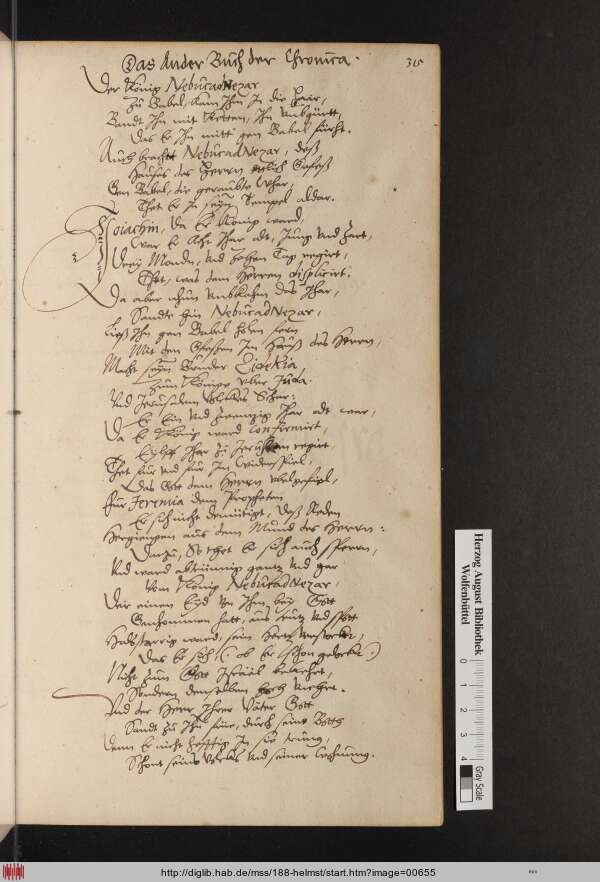 Das Ander Buch der Chronica.
315
Der König NebucadNezar
Zu Babel, kam Ihm In die
Bandt Ihn mit Ketten, Ihn
Das Er Ihn mitt gen Babel führt.
Auch bracht NebucadNezar, deß
Hauses des Herrn etlich Gefeß
Gen Babel, die geraubte Whar,
Thet Er In seyn Tempel aldar.
Joiachin, da Er König ward,
War Er Acht Jhar alt, Jung vnd Zart,
Drey Monde, vnd Zehen Tag regirt,
Thet, was dem Herren displicirt.
Da aber nhun vmbkahm das Jhar,
Sandte hin NebucadNezar,
Ließ Ihn gen Babel holen fern
Mit den Gefeßen Im Hauß des Herrn,
Macht seyn Bruder Zidekia,
Zum König vber Juda
Vnd Jerusalem
Er Ein vnd Zwenzig Jhar alt war,
Da Er König ward confirmirt,
Eylff Jhar zu Jerusalem regirt,
Thet für vnd für Im widerspiel,
Das Gott dem Herrn vbel gefiel,
Für Jeremia dem Propheten
Er sich nicht demütigt, deß Reden
Hergiengen aus dem Mund des Herrn:
Darzu, So thet Er sich auch sperrn,
Vnd ward abtrünnig gantz vnd gar
Vom König NebucadNezar,
Der einen Eyd von Ihm bey Gott
Genhommen hatt, aus trutz vnd spott
Halsstarrig ward, sein Hertz verstockt,
Das Er sich (: ob Er schon gelockt :)
Nicht zum Gott Israël bekehrt,
Sondern denselben hoch vnehrt.
Vnd der Herr Ihrer Väter Gott
Sandt zu Ihn früe, durch seine Botth
Denn Er nicht hefftig In
Schont seines Volcks vnd seiner Wohnung.
Herzog August Bibliothek
Wolfenbüttel
0 1 2 3 4
Gray Scale
http://diglib.hab.de/mss/188-helmst/start.htm?image=00655